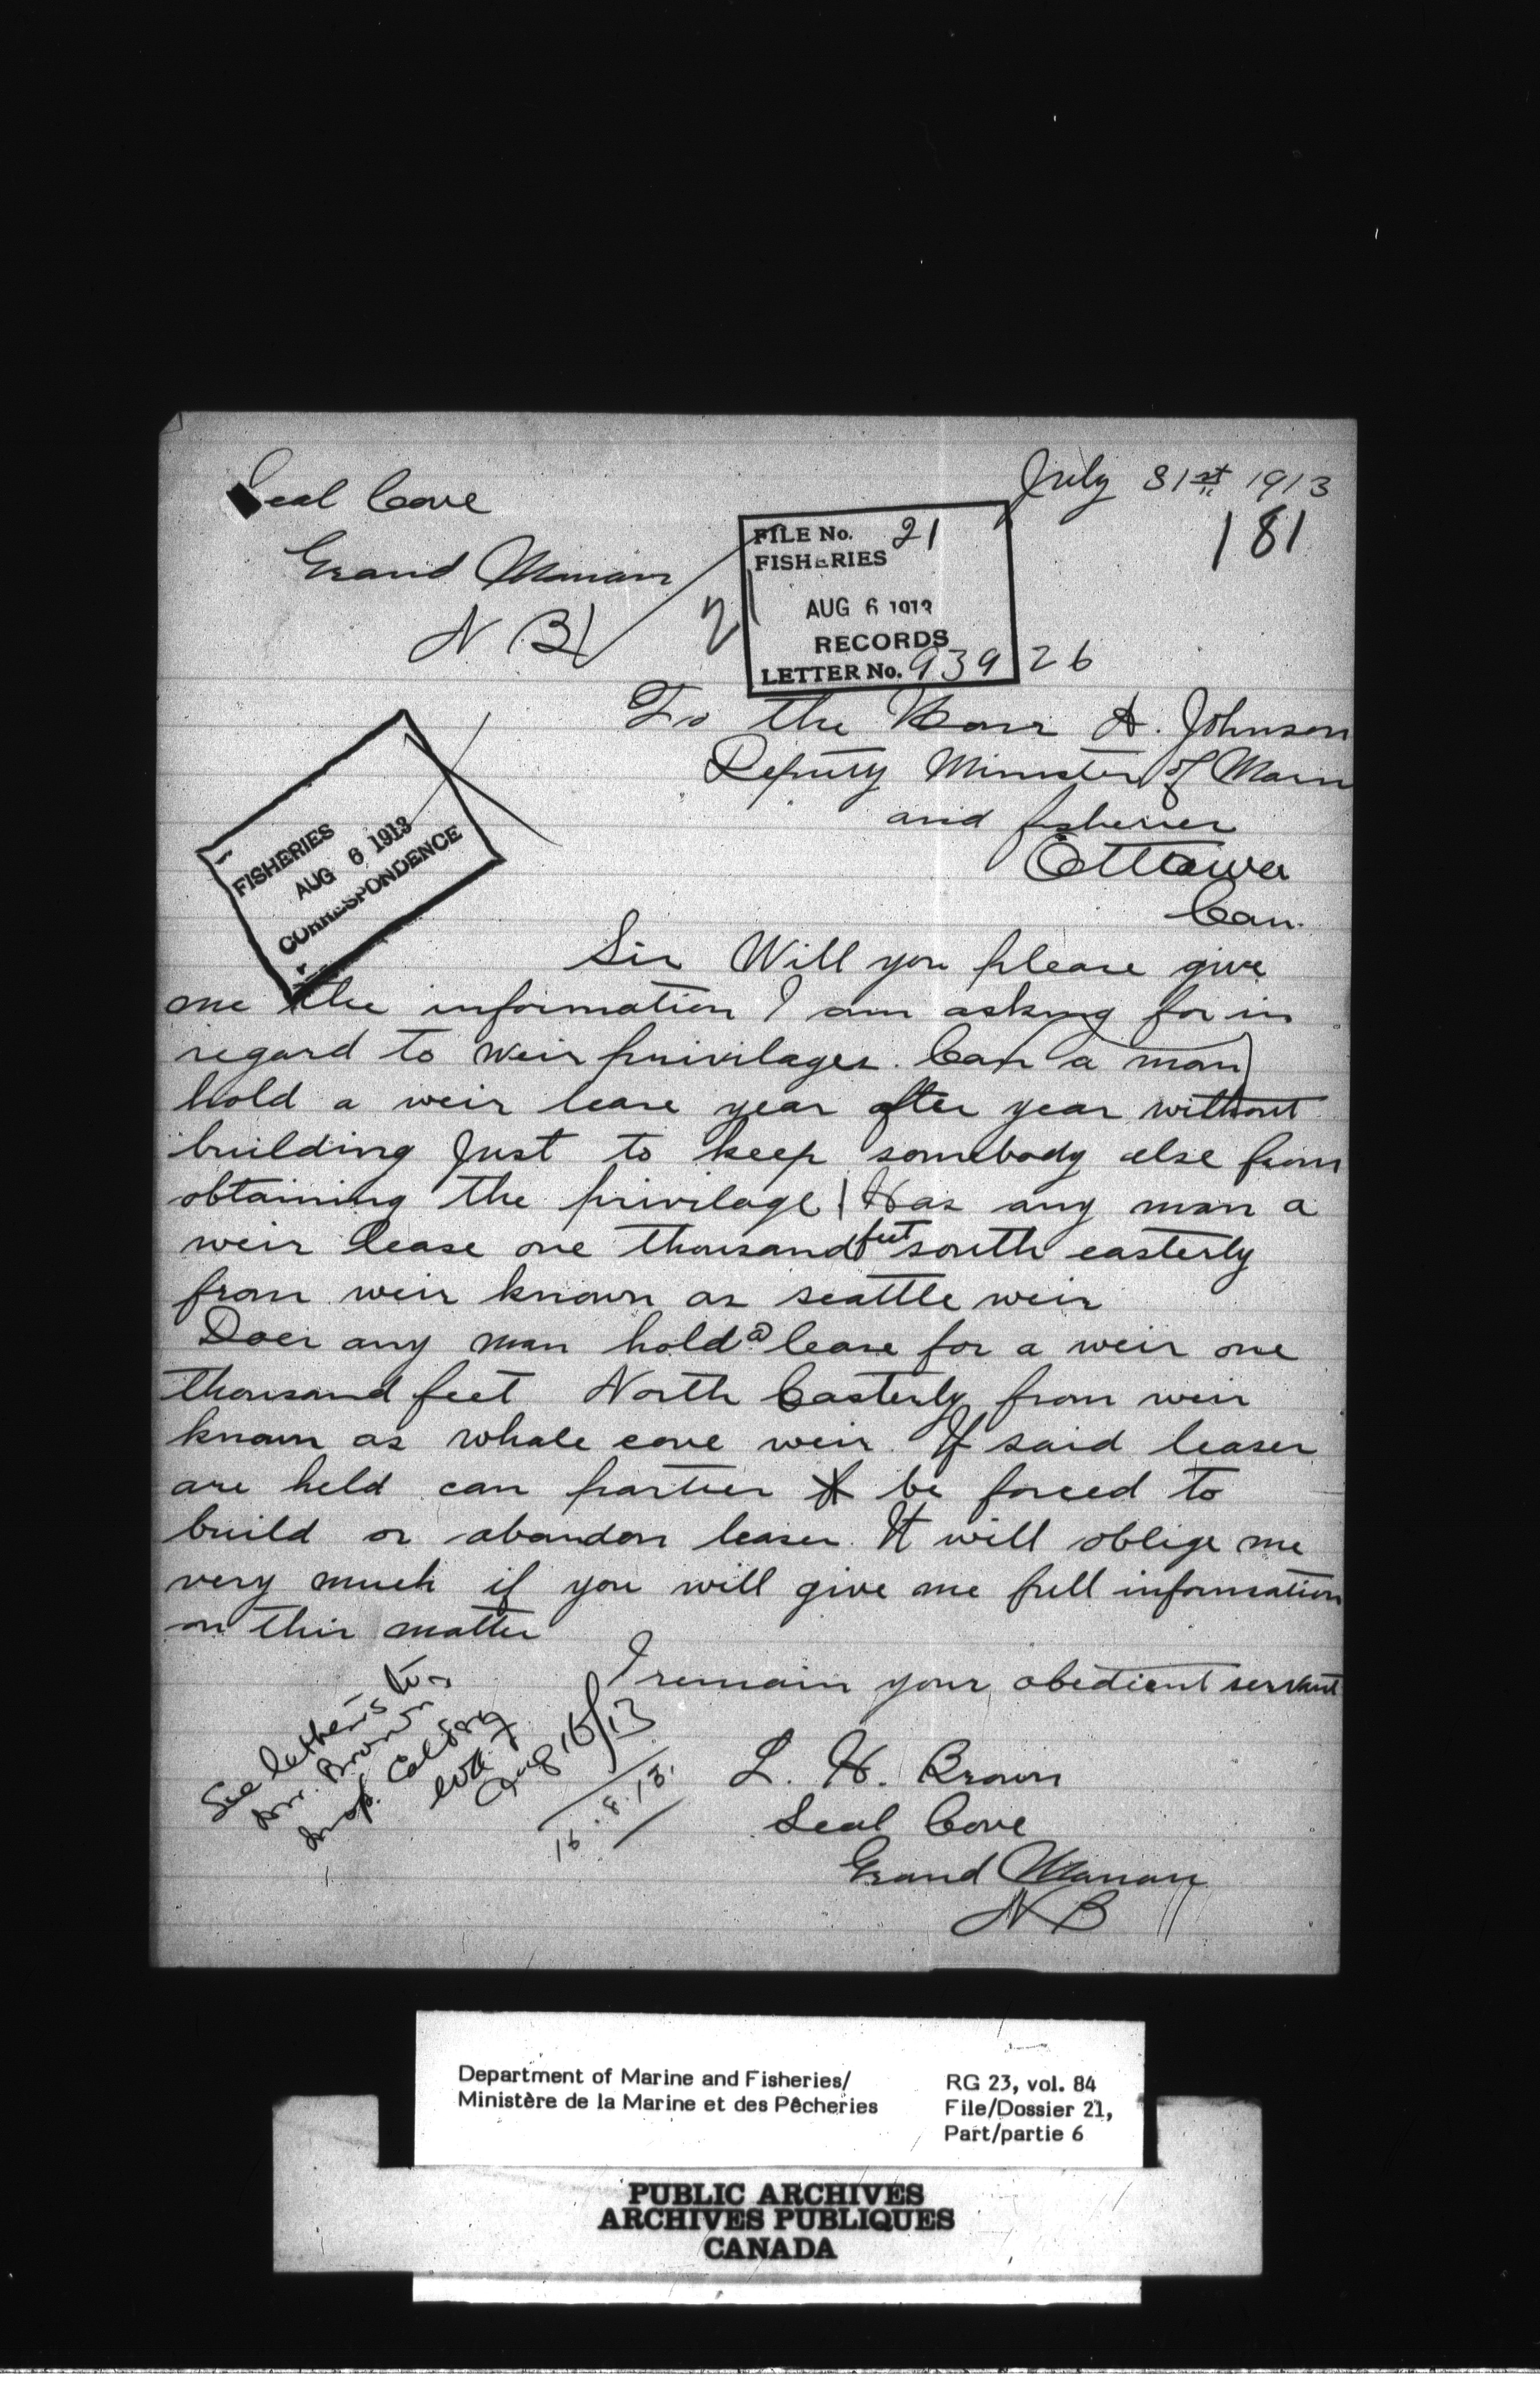 Seal Cove
July 31st 1913
181
Grand Manan
N B
FILE No. 21
FISHERIES
AUG 6 1913
RECORDS
LETTER No. 93926
21
To the Honr A. Johnson
Deputy Minister of Marn
and fisheries
Ottawa
Can.
FISHERIES
AUG 6 1913
CORRESPONDENCE
Sir Will you please give
me the information I am asking for in
regard to weir privilages. Can a man
hold a weir lease year after year without
building Just to keep somebody else from
obtaining the privilage Has any man a
weir lease one thousand feet south easterly
from weir known as seattle weir
Does any man hold a lease for a weir one
thousand feet North Easterly from weir
known as whale cove weir. If said leases
are held can parties be forced to
build or abandon leases. It will oblige me
very much if you will give me full information
on this matter
I remain your obedient servant
L. H. Brown
Seal Cove
Grand Manan
N B
See letters to
Mr. Brown
Insp. Calder
Aug 16/13
16.8.13.
Department of Marine and Fisheries/
Ministère de la Marine et des Pêcheries
RG 23, vol. 84
File/Dossier 21,
Part/partie 6
PUBLIC ARCHIVES
ARCHIVES PUBLIQUES
CANADA